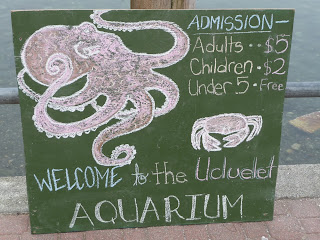 ADMISSION -
Adults .. $5
Children . $2
Under 5 . Free
WELCOME to the Ucluellet
AQUARIUM